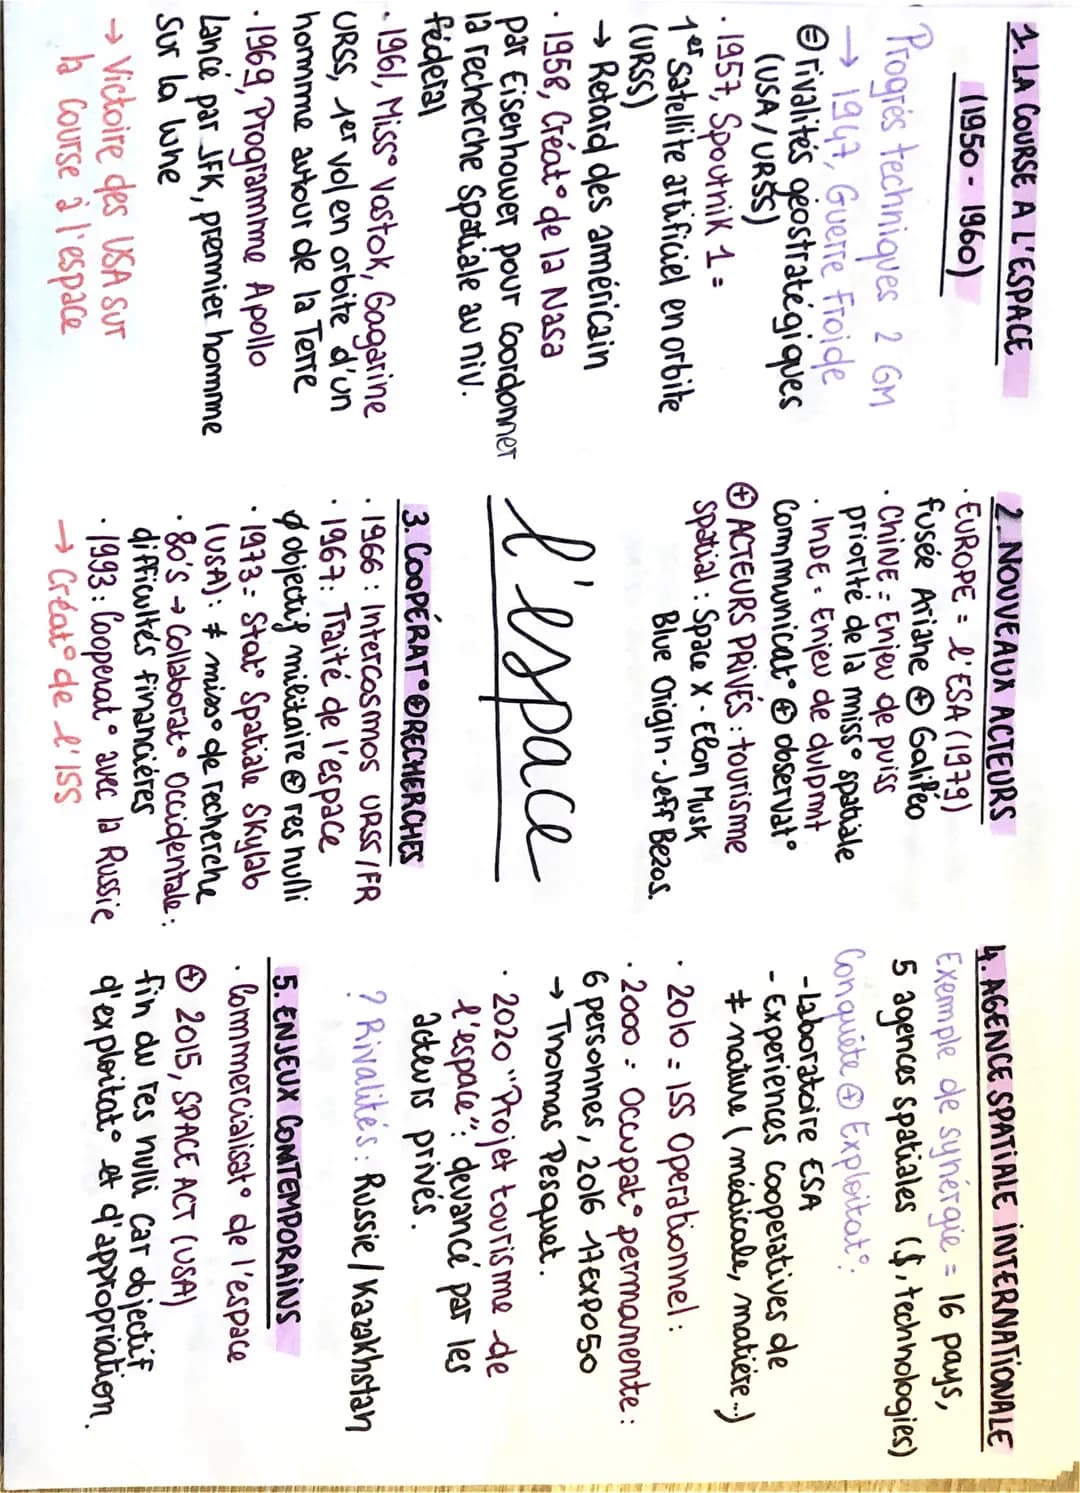 1. LA COURSE A L'ESPACE
(1950 - 1960)
Progrès techniques 2 GM
→ 1947, Guerre froide
⊕ rivalités géostratégiques
(USA/URSS)
· 1957, Spoutnik 1 =
1er satellite artificiel en orbite
(URSS)
→ Retard des américain
· 1958, Créat° de la Nasa
par Eisenhower pour coordonner
la recherche Spatiale au niv.
fédéral
· 1961, Miss° Vostok, Gagarine
URSS, 1er vol en orbite d'un
homme autour de la Terre
· 1969, Programme Apollo
Lancé par JFK, premnier homme
Sur la lune
→ Victoire des USA sur
la Course à l'espace
2. NOUVEAUX ACTEURS
· EUROPE = l'ESA (1979)
fusée Ariane ⊕ Galiléo
· CHINE = Enjeu de puiss
priorité de la miss° spatiale
· INDE = Enjeu de dvlpmt
Communicat° ⊕ observat°
⊕ ACTEURS PRIVÉS : tourisme
spatial : Space X - Elon Musk
Blue Origin - Jeff Bezos.
l'espace
3. COOPÉRAT° ⊕ RECHERCHES
· 1966 : Intercosmos URSS/FR
· 1967 : Traité de l'espace
∅ objectif militaire ⊕ res nulli
· 1973 = Stat° Spatiale Skylab
(USA) : ≠ miss° de recherche
· 80's → Collaborat° Occidentale :
difficultés financières
· 1993 : Cooperat° avec la Russie
→ Créat° de l'ISS
4. AGENCE SPATIALE INTERNATIONALE
Exemple de synérgie = 16 pays,
5 agences spatiales ($, technologies)
Conquête ⊕ Exploitat° :
- Laboratoire ESA
- Expériences cooperatives de
≠ nature (médicale, matière...)
· 2010 = ISS Operationnel :
· 2000 = Occupat° permamente :
6 personnes, 2016 17 EXPO50
→ Thomas Pesquet.
· 2020 "Projet tourisme de
l'espace" : devancé par les
acteurs privés.
? Rivalités : Russie/Kazakhstan
5. ENJEUX COMTEMPORAINS
· Commmercialisat° de l'espace
⊕ 2015, SPACE ACT (USA)
fin du res nulli car objectif
d'exploitat° et d'appropriation.